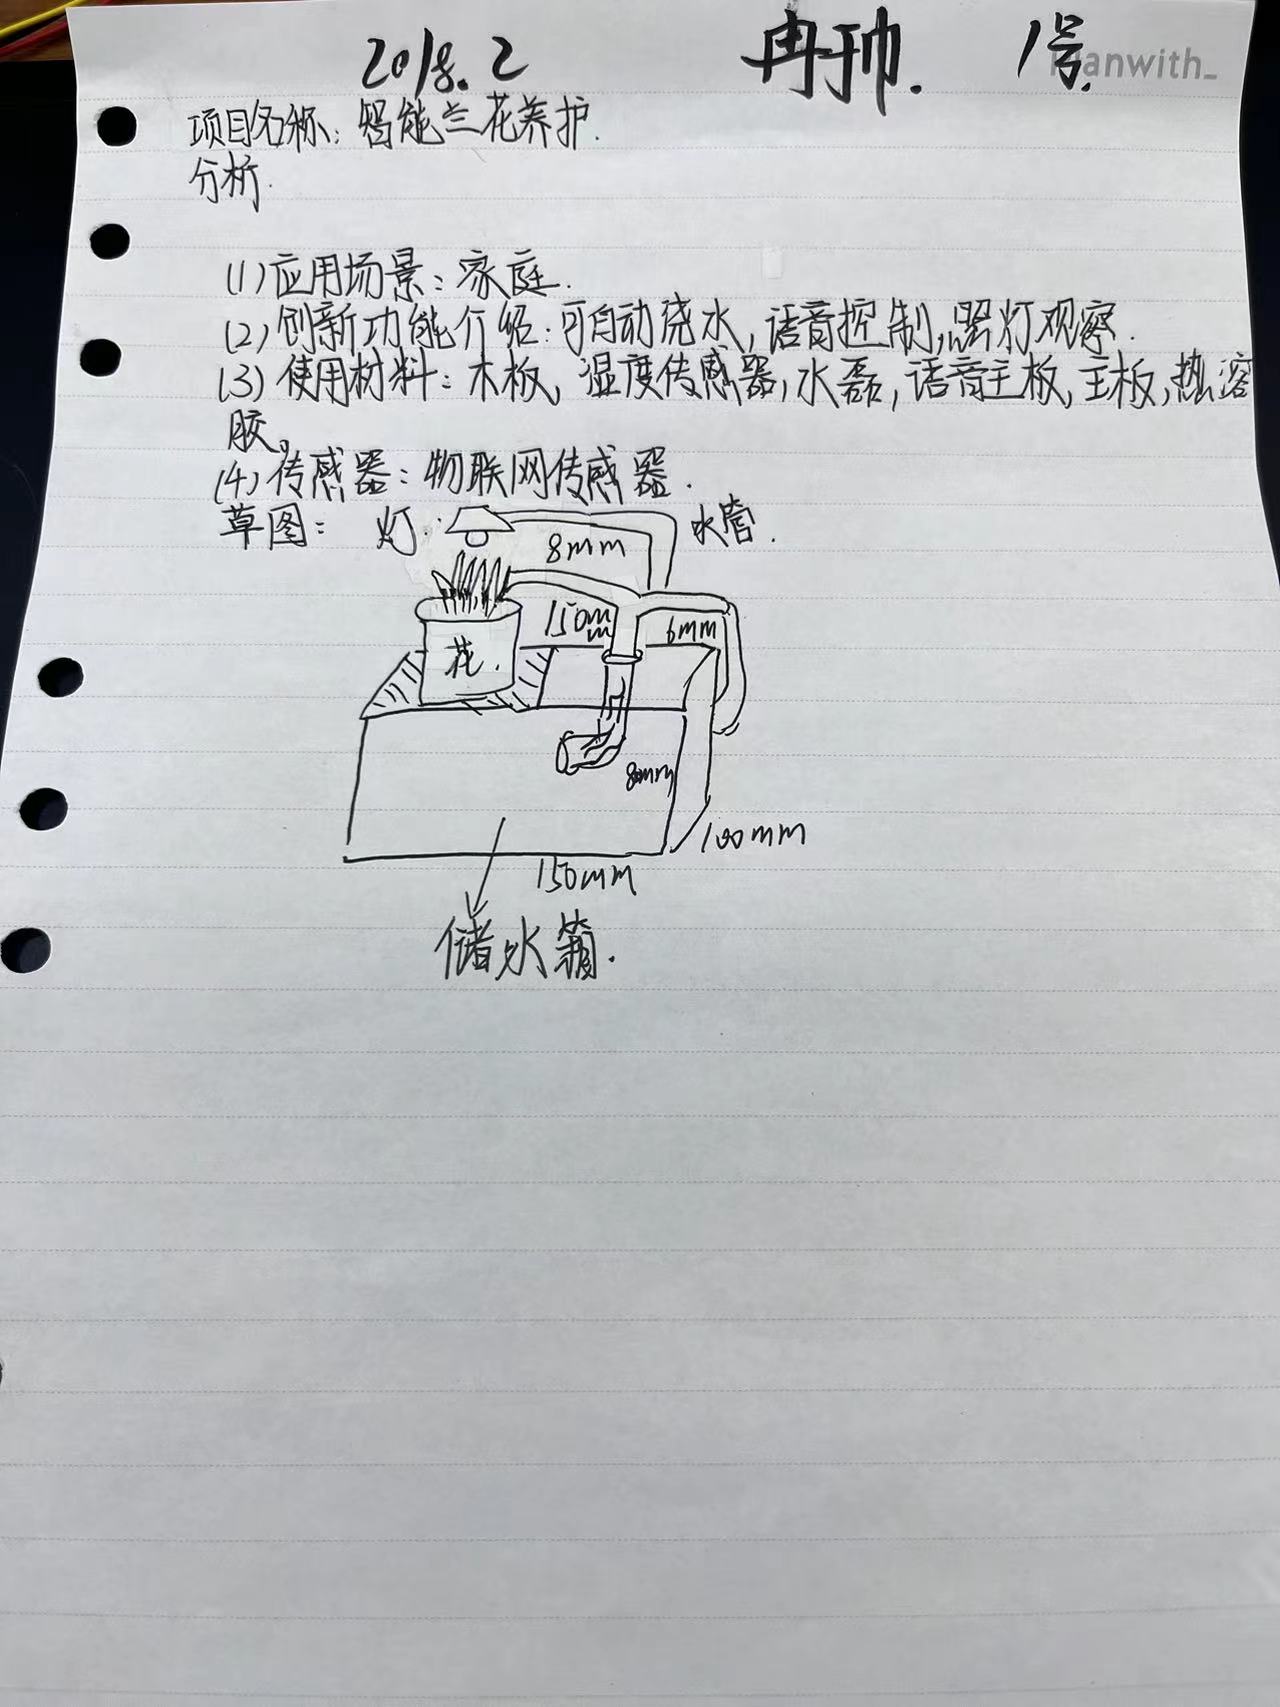 2018.2 冉帅. 1号.
anwith_
项目名称: 智能兰花养护.
分析.
(1)应用场景: 家庭.
(2)创新功能介绍: 可自动浇水, 语音控制, 照灯观察.
(3)使用材料: 木板, 湿度传感器, 水磊, 语音主板, 主板, 热溶
胶。
(4)传感器: 物联网传感器.
草图: 灯. 水管.
8mm
150mm
6mm
花.
80mm
100mm
150mm
储水箱.